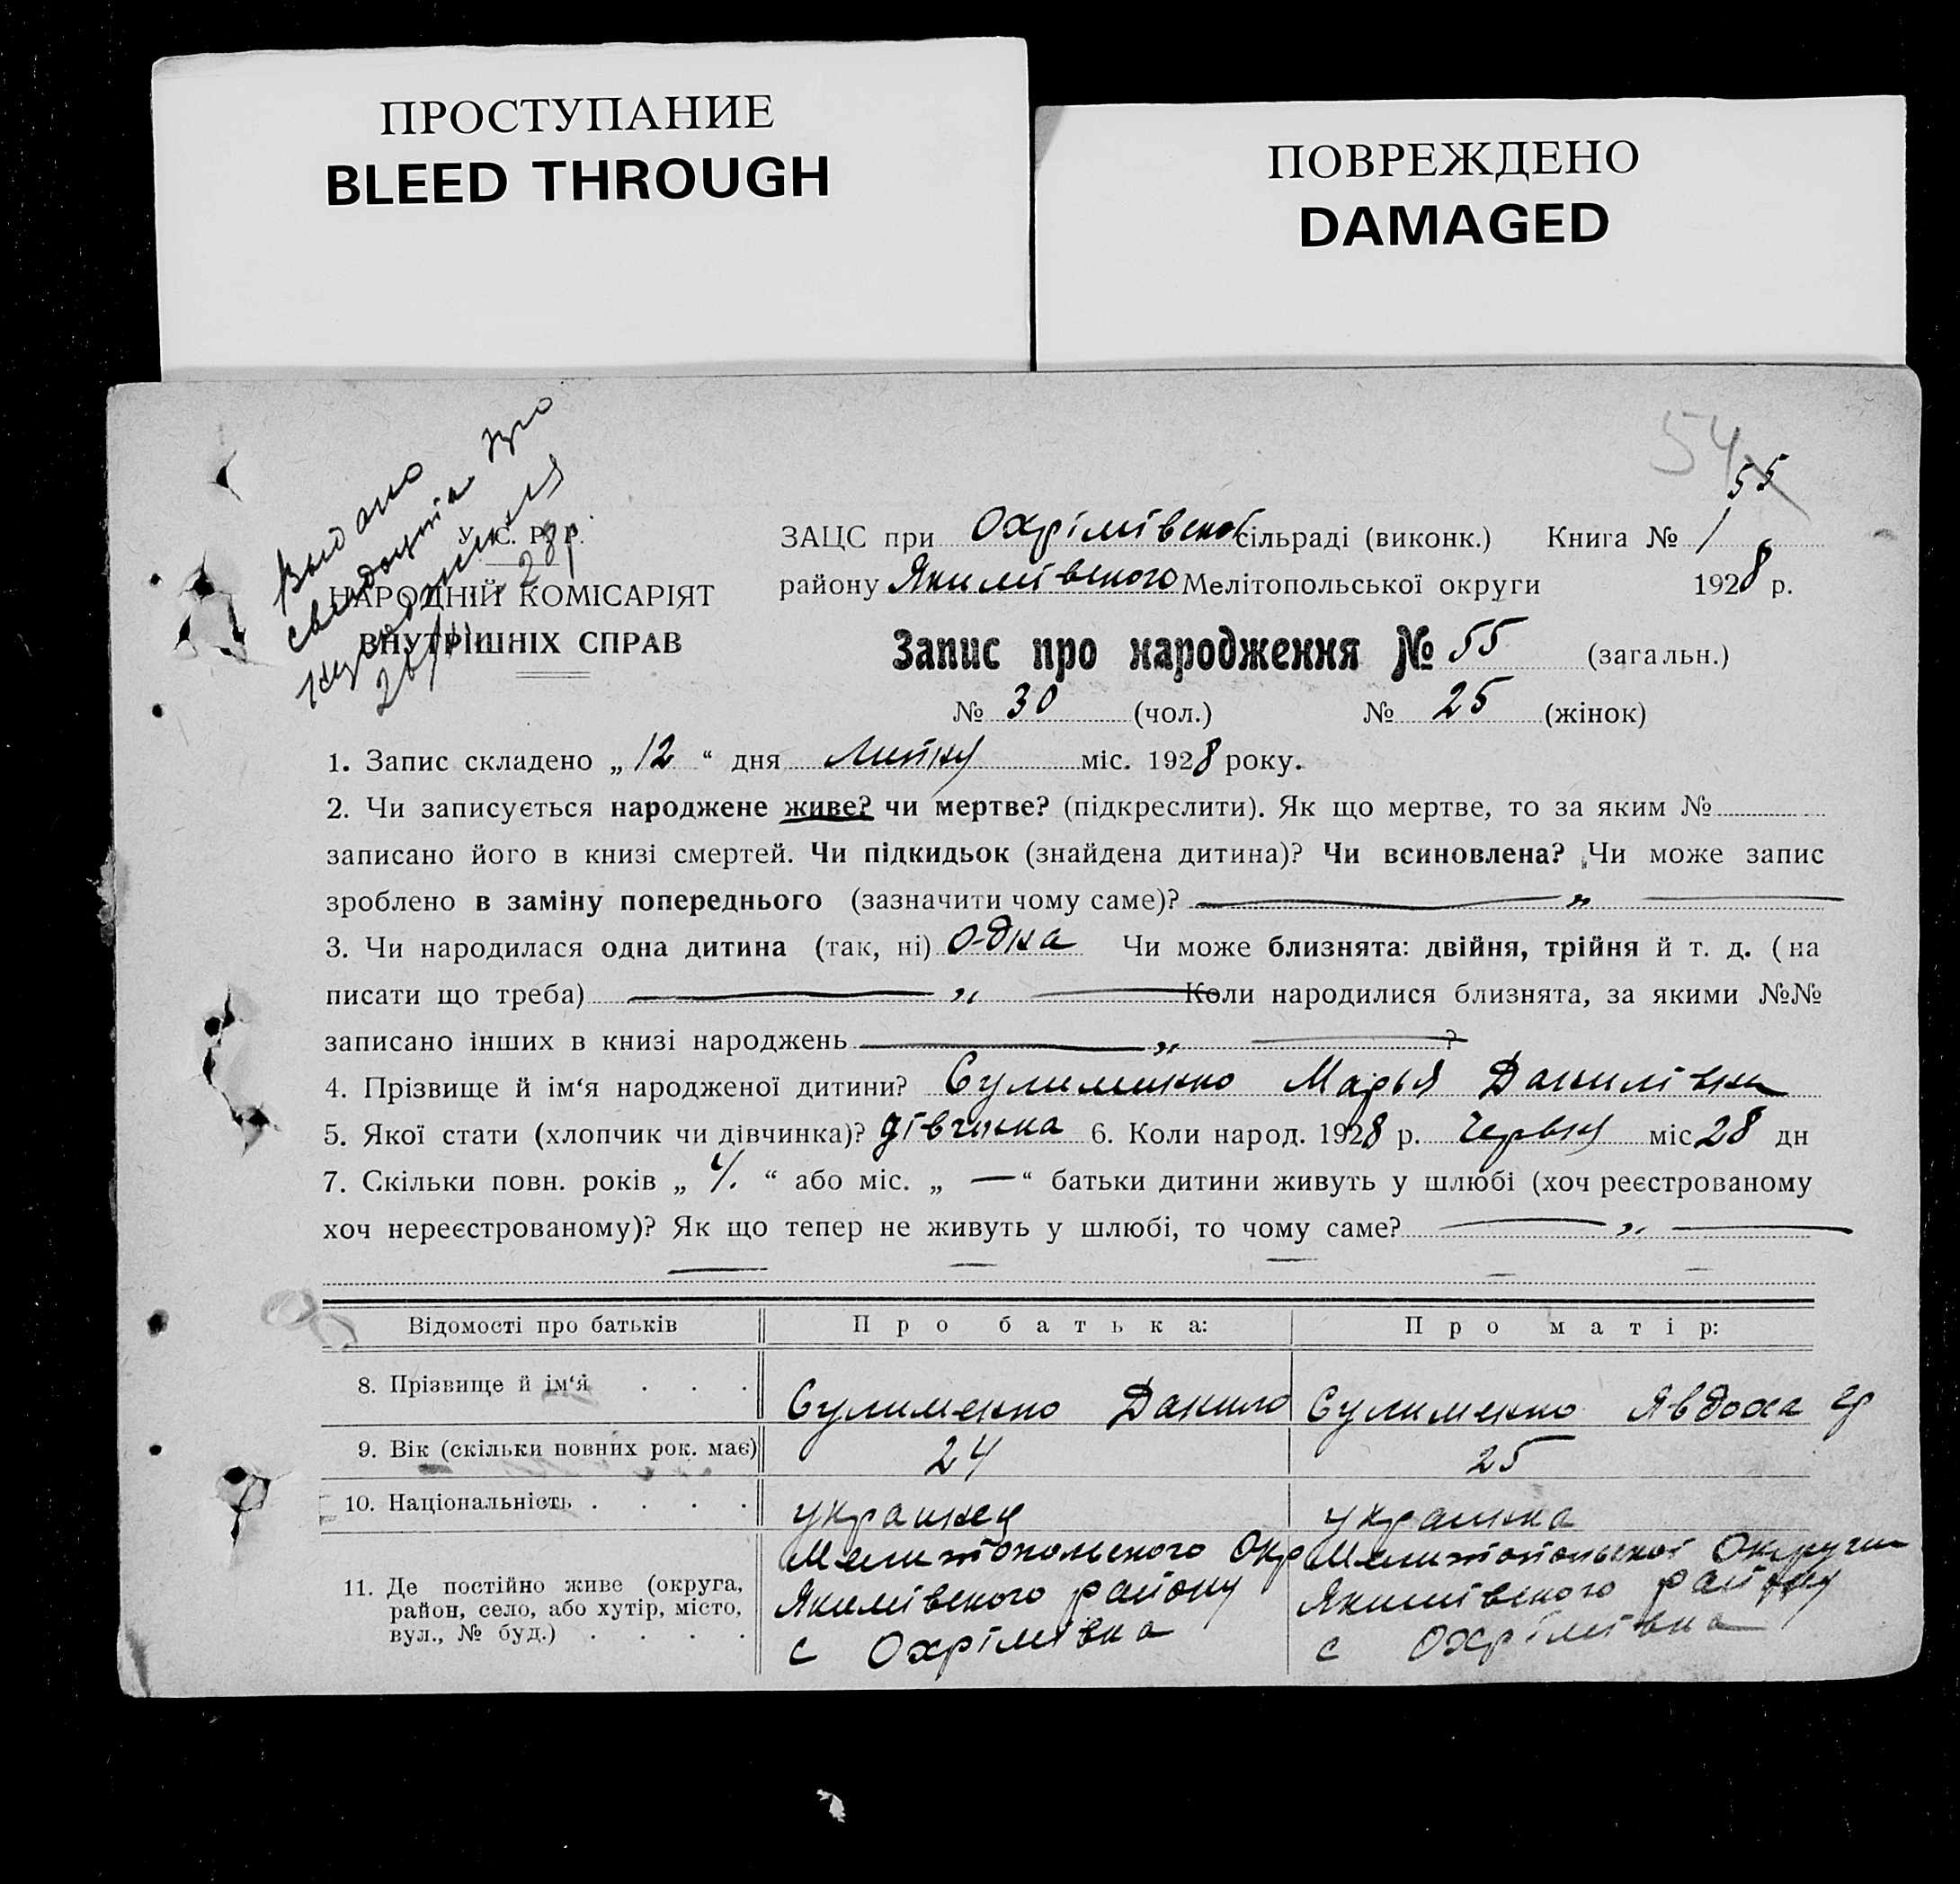 ПРОСТУПАНИЕ
BLEED THROUGH
ПОВРЕЖДЕНО
DAMAGED
54
55
Видано
свидоцтва про
народження
28р.
У. С. Р. Р.
НАРОДНІЙ КОМІСАРІЯТ
ВНУТРІШНІХ СПРАВ
ЗАЦС при Охрімівской сільраді (виконк.) Книга № 1
району Якимівского Мелітопольської округи 1928 р.
Запис про народження № 55 (загальн.)
№ 30 (чол.) № 25 (жінок)
1. Запис складено „ 12 “ дня Липня міс. 1928 року.
2. Чи записується народжене живе? чи мертве? (підкреслити). Як що мертве, то за яким №
записано його в книзі смертей. Чи підкидьок (знайдена дитина)? Чи всиновлена? Чи може запис
зроблено в заміну попереднього (зазначити чому саме)? — „ —
3. Чи народилася одна дитина (так, ні) одна Чи може близнята: двійня, трійня й т. д. (на
писати що треба) — „ — Коли народилися близнята, за якими №№
записано інших в книзі народжень — „ — ?
4. Прізвище й ім‘я народженої дитини? Сулименко Марья Данилівна
5. Якої стати (хлопчик чи дівчинка)? дівчина 6. Коли народ. 1928 р. Червня міс 28 дн
7. Скільки повн. років „ 4. “ або міс. „ — “ батьки дитини живуть у шлюбі (хоч реєстрованому
хоч нереєстрованому)? Як що тепер не живуть у шлюбі, то чому саме? — „ —
— — — — —
Відомості про батьків Про батька: Про матір:
8. Прізвище й ім‘я . . . Сулименко Данило Сулименко Явдоха
9. Вік (скільки повних рок. має) 24 25
10. Національність . . . . украинец украинка
11. Де постійно живе (округа, район, село, або хутір, місто, вул., № буд.) . . . .
Мелитопольского Окр
Якимівского району
с Охрімівка
Мелитопольскої Округи
Якимівского району
с Охрімівка